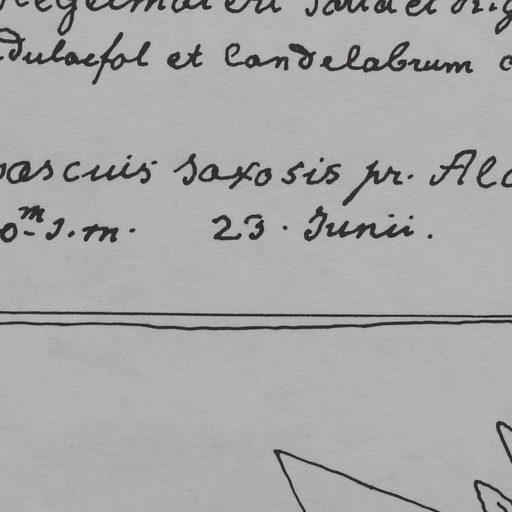 et
dulaefol et Candelabrum
pascuis saxosis pr. Alc
0 m s. m. 23. Junii.